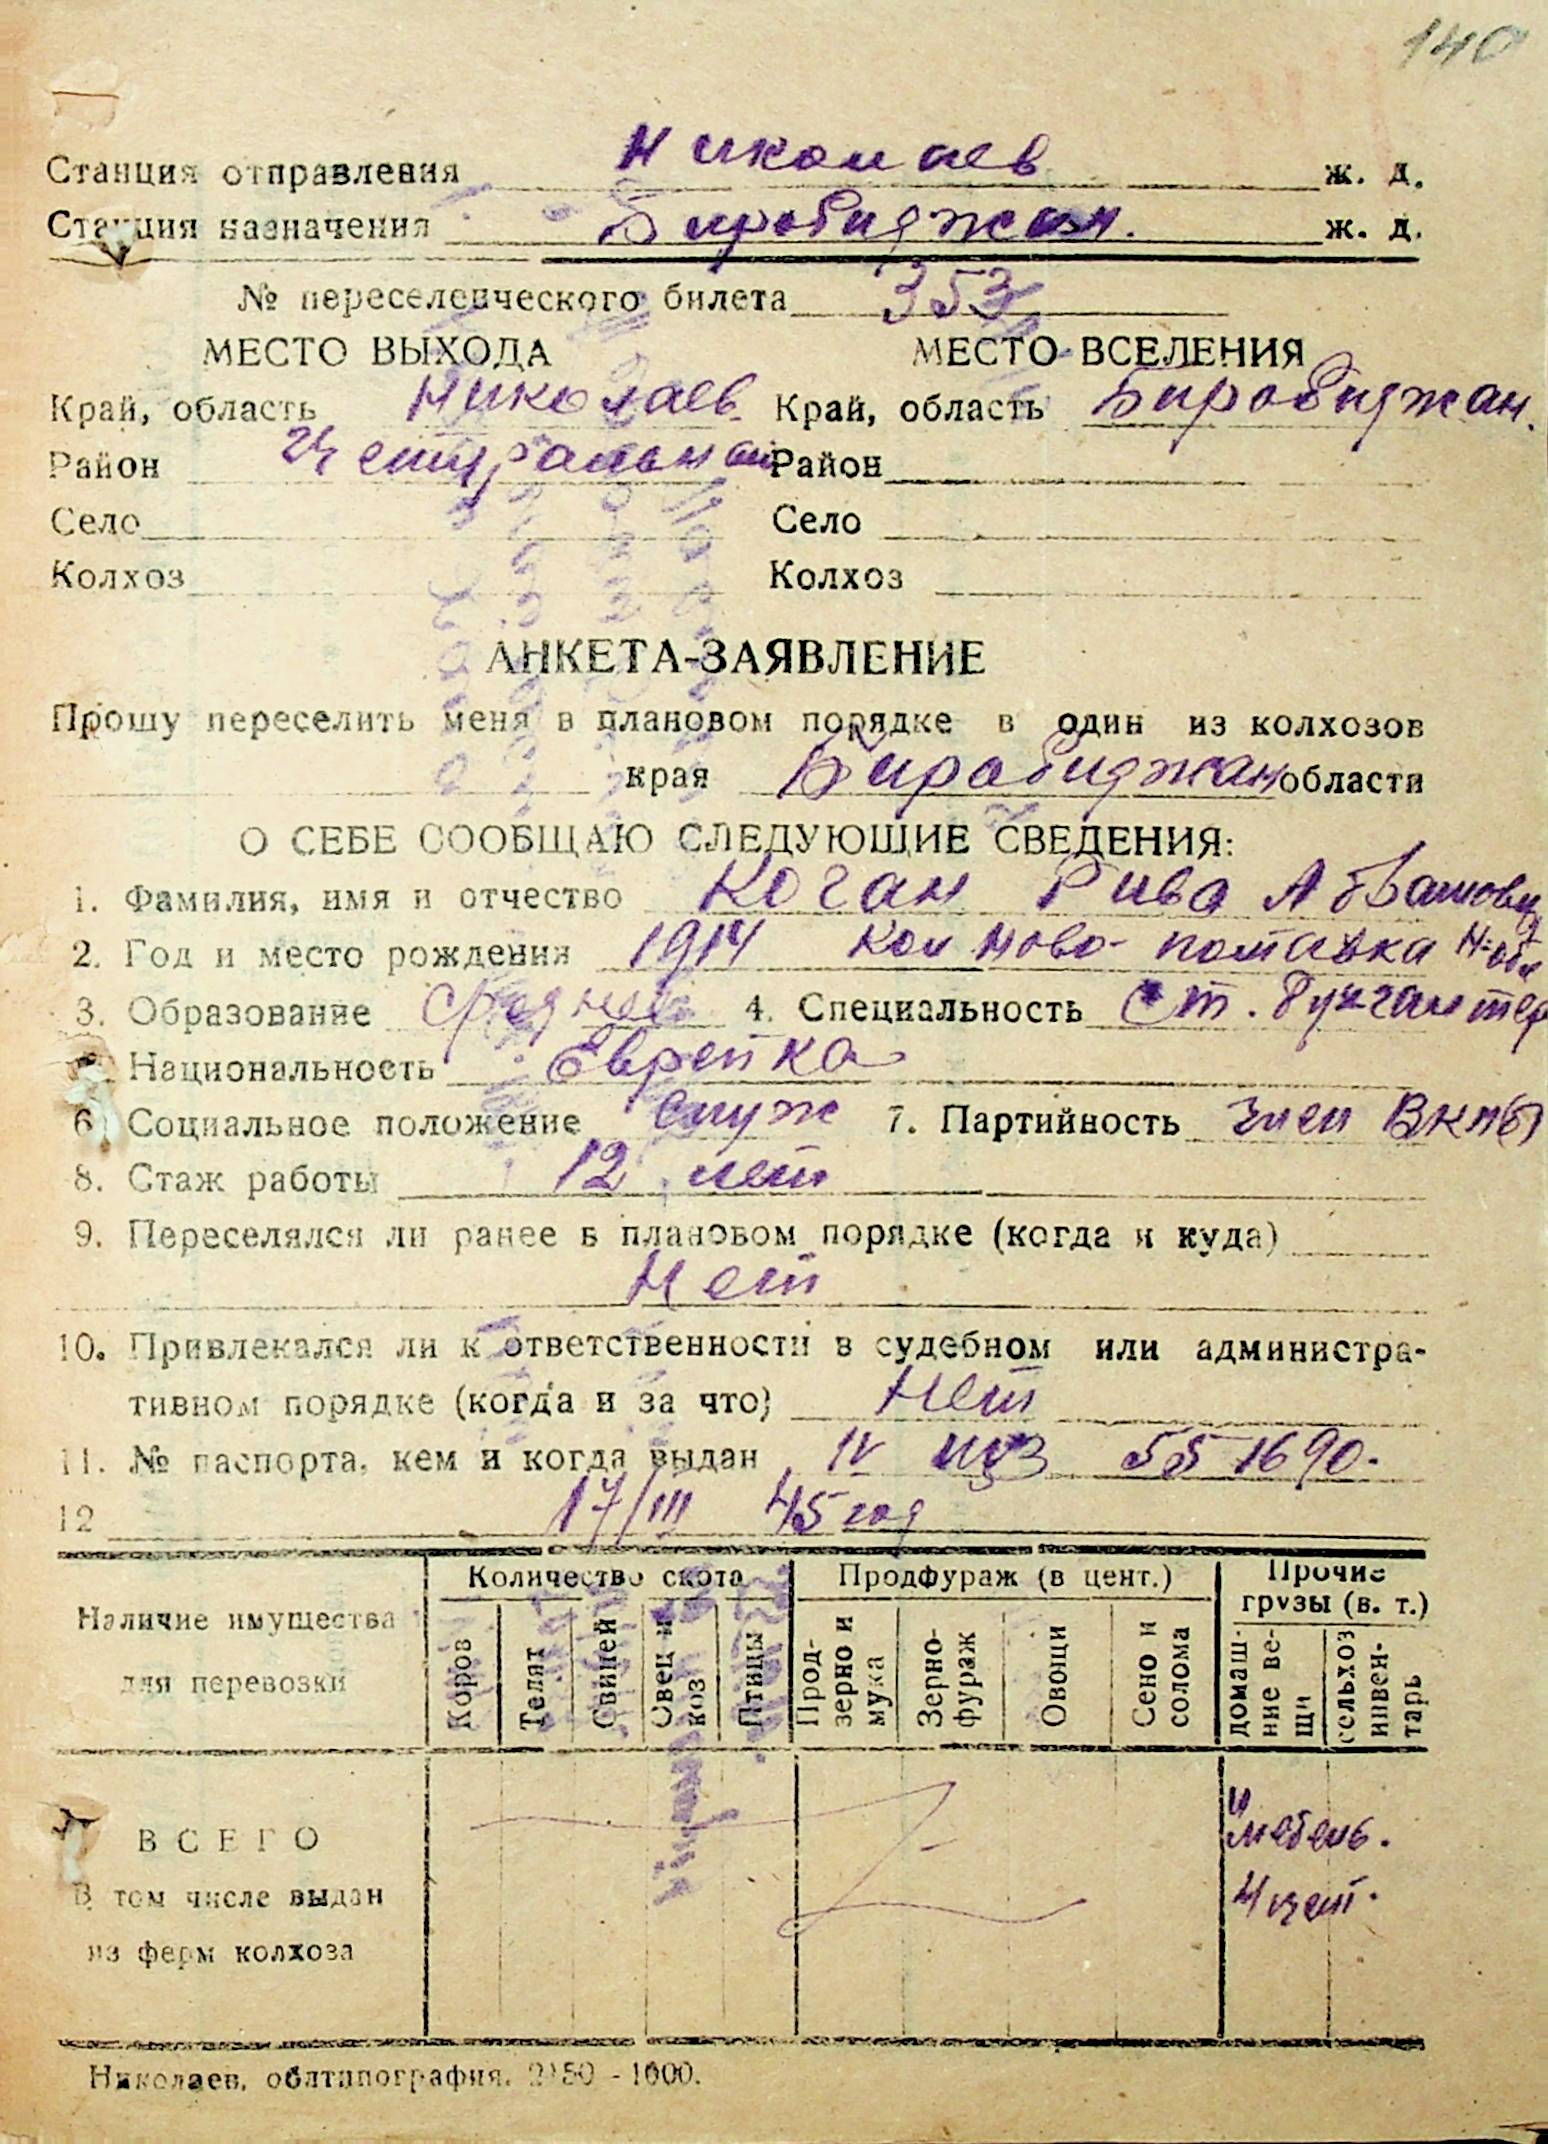 140
Станция отправления Николаев ж. д.
Станция назначения Биробиджан. ж. д.
№ переселенческого билета 353
МЕСТО ВЫХОДА МЕСТО ВСЕЛЕНИЯ
Край, область Николаев Край, область Биробиджан.
Район Центральный Район
Село Село
Колхоз Колхоз
АНКЕТА-ЗАЯВЛЕНИЕ
Прошу переселить меня в плановом порядке в один из колхозов
края Биробиджан области
О СЕБЕ СООБЩАЮ СЛЕДУЮЩИЕ СВЕДЕНИЯ:
1. Фамилия, имя и отчество Коган Рива
2. Год и место рождения 1914 Ново-
3. Образование среднее 4. Специальность Ст. Бухгалтер
Национальность Еврейка
6. Социальное положение служ 7. Партийность член ВКП(б)
8. Стаж работы 12 лет
9. Переселялся ли ранее в плановом порядке (когда и куда)
Нет
10. Привлекался ли к ответственности в судебном или администра-
тивном порядке (когда и за что) Нет
11. № паспорта, кем и когда выдан IV 551690.
12 17/III 45 год
Количество скота Продфураж (в цент.) Прочие грузы (в. т.)
Наличие имущества для перевозки Коров Телят Свиней Овец и коз Птицы Прод-зерно и мука Зерно-фураж Овощи Сено и солома домаш-ние ве-щи сельхоз инвен-тарь
ВСЕГО мебель.
В том числе выдан 4 цент.
из ферм колхоза
Николаев, облтипография. 2150 - 1000.